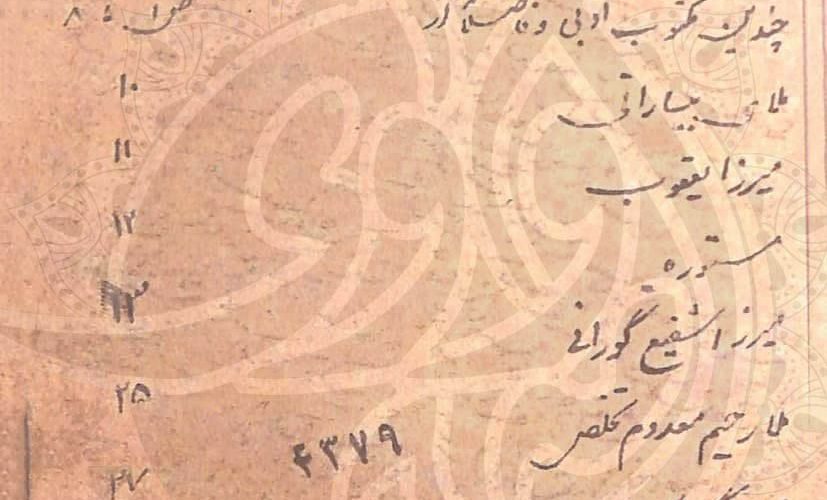 چندین مکتوب ادبی و فاضلانه از ص ۱ تا ۸
ملا بیسارانی ۱۰
میرزا یعقوب ۱۱
مستوره ۱۲
میرزا شفیع گورانی ۱۳
ملا رحیم معدوم تخلص ۲۵
۴۳۷۹
۲۷